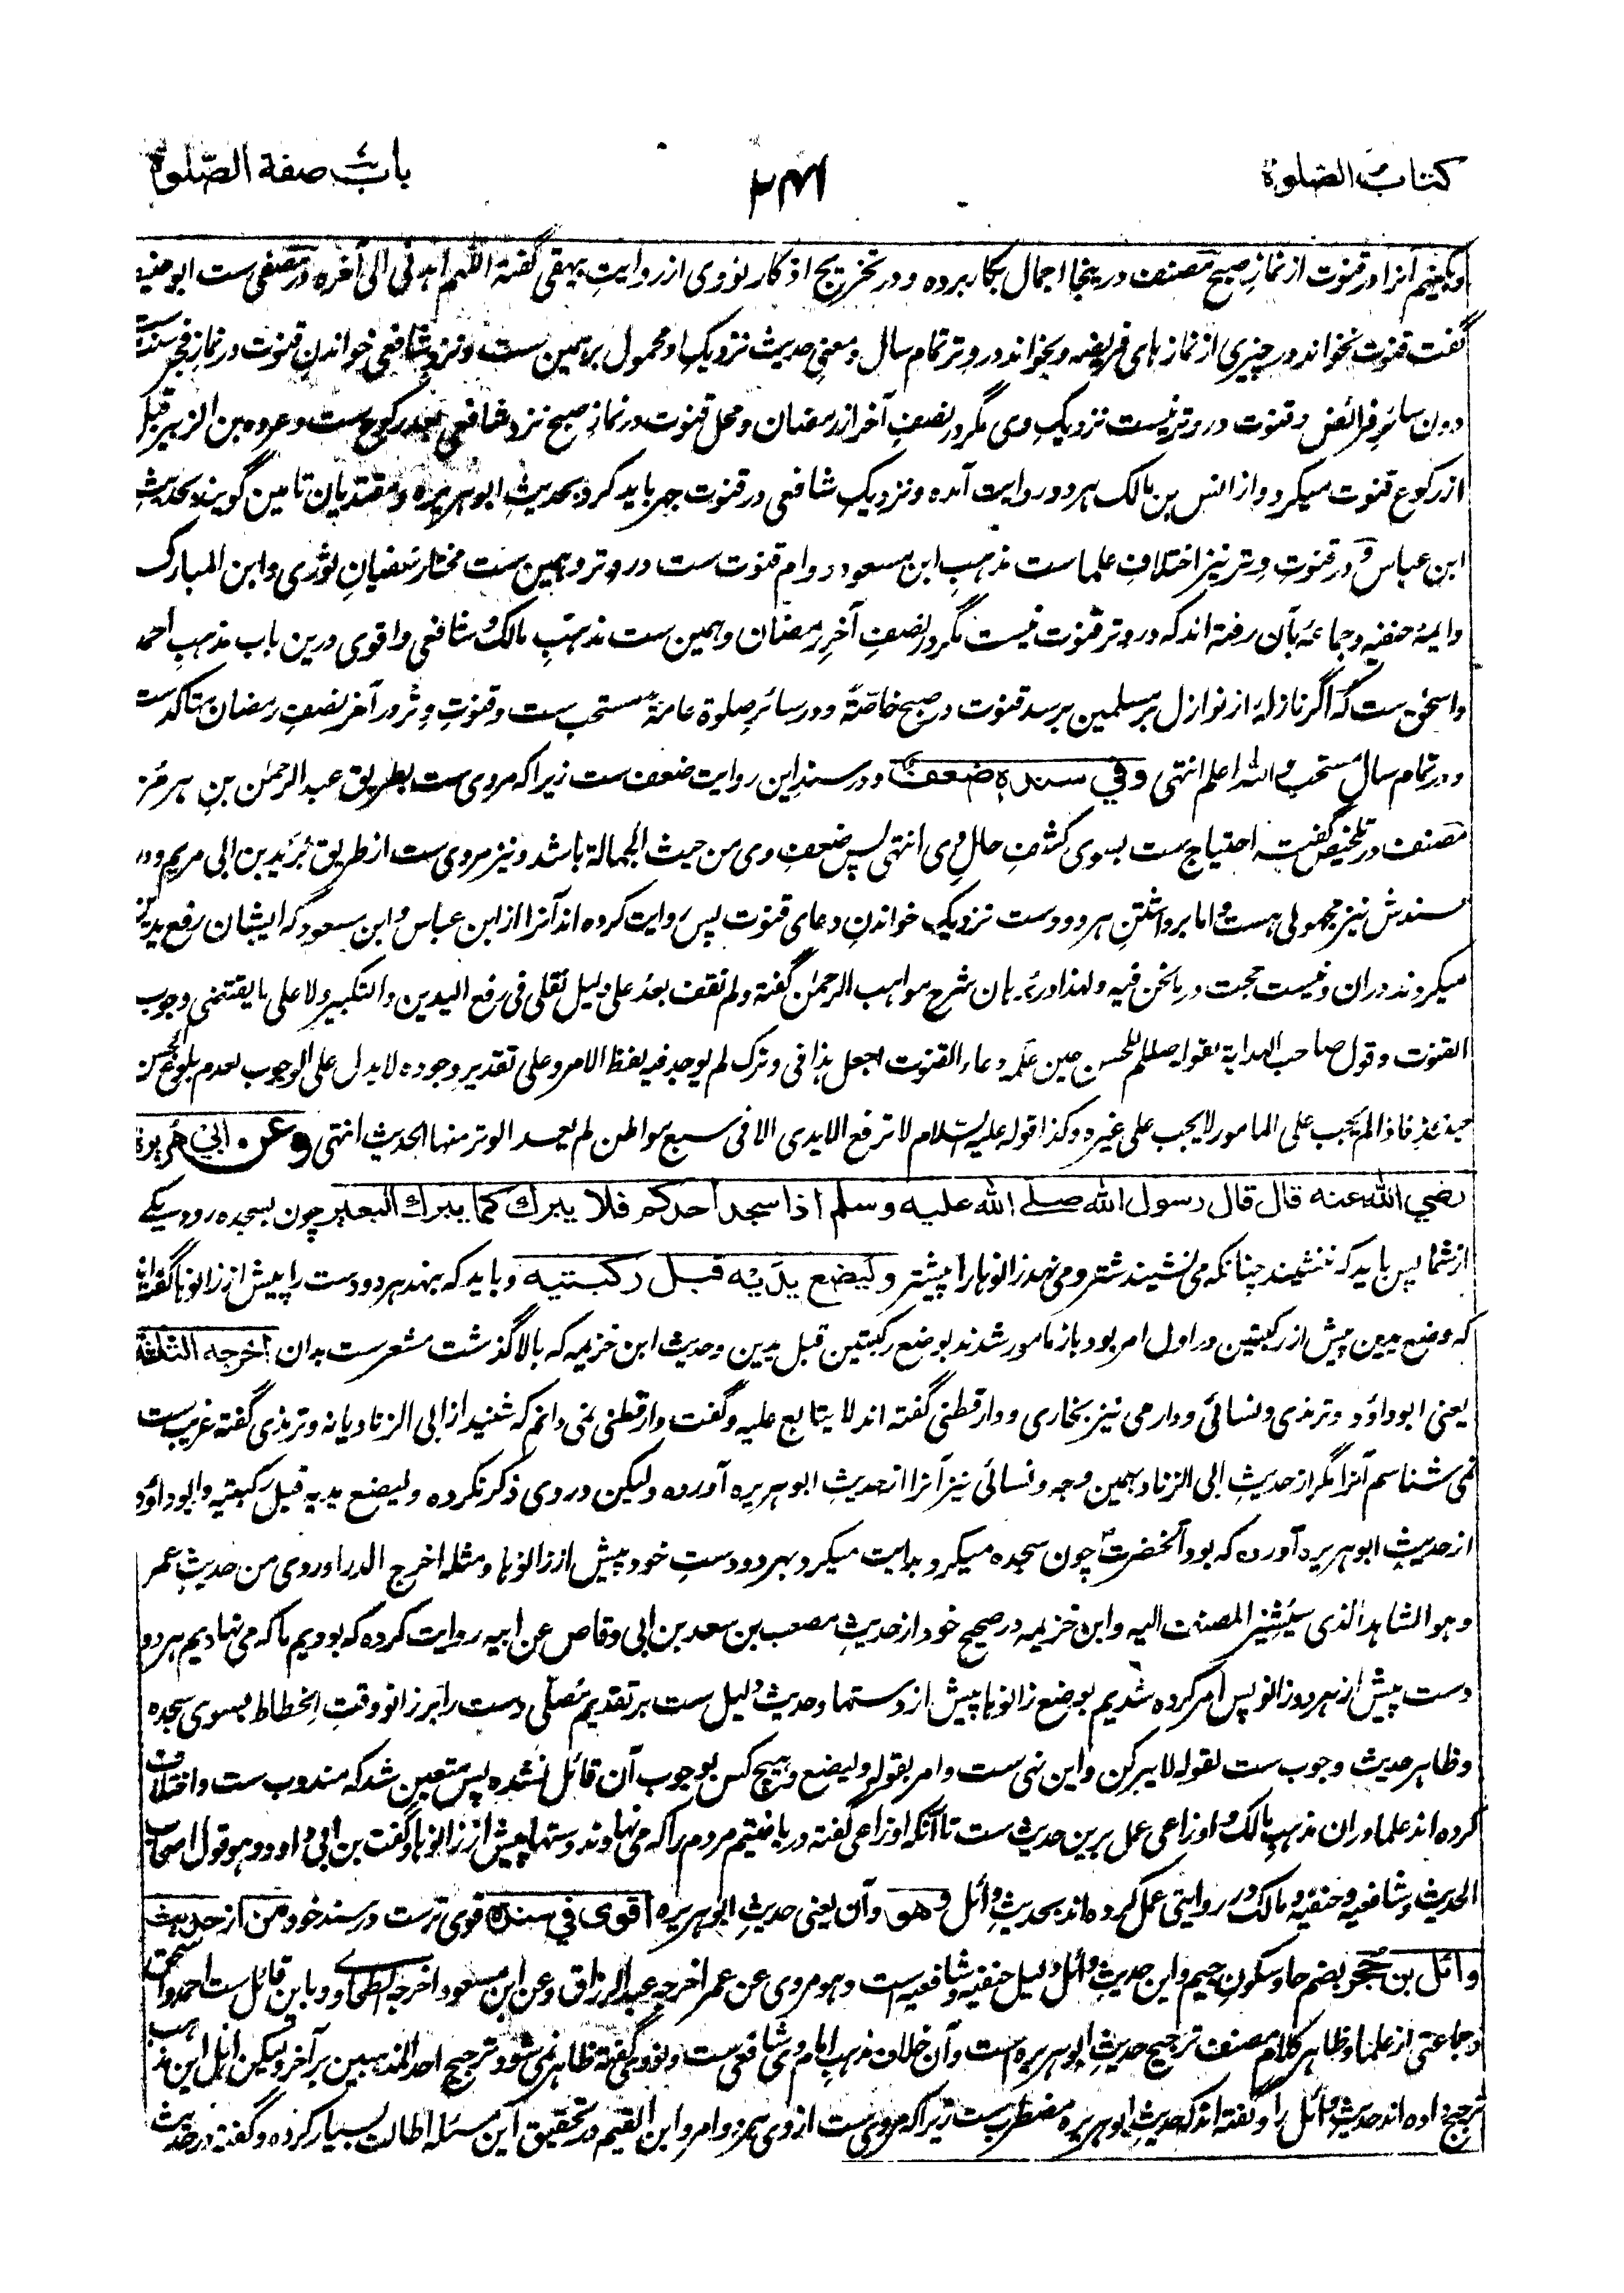 کتاب الصلوة
۲۴۱
باب صفة الصلوة
و بگینم آنرا در قنوت از نماز صبح مصنف درینجا اجمال بکار برده و در تخریج اذکار نووی از روایتِ بیهقی گفته اللهم اهدنی الی آخره و در مصفی ست ابو حنیفه
گفت قنوت نخواند در چیزی از نماز های فریضه و بخواند در وتر تمام سال و معنیِ حدیث نزدیک او محمول بر همین ست و نزد شافعی خواندنِ قنوت در نمازِ فجر سنت ست
دون سائرِ فرائض و قنوت در وتر نیست نزدیکِ وی مگر در نصفِ آخر از رمضان و محل قنوت در نمازِ صبح نزد شافعی بعد رکوع ست و عروه بن الزبیر قبل
از رکوع قنوت میکرد و از انس بن مالک هر دو روایت آمده و نزدیکِ شافعی در قنوت جهر باید کرد بحدیثِ ابو هریره و مقتدیان تامین گویند بحدیثِ
ابن عباس و در قنوتِ وتر نیز اختلافِ علماست مذهبِ ابن مسعود دوام قنوت ست در وتر و همین ست مختار سفیانِ ثوری و ابن المبارک
و ایمهٔ حنفیه و جماعهٔ بآن رفته اند که در وتر قنوت نیست مگر در نصفِ آخرِ رمضان و همین ست مذهبِ مالک و شافعی و اقوی درین باب مذهبِ احمد
و اسحٰق ست که اگر نازلهٔ از نوازل بر مسلمین برسد قنوت در صبح خاصّةً و در سائرِ صلوة عامةً مستحب ست و قنوتِ وتر در آخر نصفِ رمضان متاکد ست
و در تمام سال مستحب و الله اعلم انتهی وفي سنده ضعف و در سندِ این روایت ضعف ست زیرا که مروی ست بطریق عبد الرحمٰن بنِ هرمز
مصنف در تلخیص گفته احتیاج ست بسوی کشفِ حالِ وی انتهی پس ضعفِ وی من حیث الجهالة باشد و نیز مروی ست از طریق بُرَید بن ابی مریم و در
سندش نیز مجهولی هست و اما برداشتنِ هر دو دست نزدیک خواندنِ دعای قنوت پس روایت کرده اند آنرا از ابن عباس و ابن مسعود که ایشان رفع یدین
میکردند دران و نیست حجت در ما نحن فیه و لهذا در برهان شرح مواهب الرحمٰن گفته و لم نقف بعدُ علی دلیل نقلی فی رفع الیدین و التکبیر و لا علی ما یقتضی وجوب
القنوت و قول صاحب الهدایة بقوله صللم للحسن حین علمه دعاء القنوت اجعل هذا فی وترک لم یوجد فیه لفظ الامر و علی تقدیر وجوده لا یدل علی الوجوب لعدم بلوغ الحسن
حینئذٍ فاذا لم یجب علی المامور لا یجب علی غیره و کذا قوله علیه السلام لا ترفع الایدی الا فی سبع مواطن لم یعد الوتر منها الحدیث انتهی وعن ابي هريرة
رضي الله عنه قال قال رسول الله صلے الله عليه وسلم اذا سجد احدكم فلا يبرك كما يبرك البعير چون بسجده رود یکے
از شما پس باید که ننشیند چنانکه می نشیند شتر و می نهد زانوها را پیشتر وليضع يديه قبل ركبتيه و باید که بنهد هر دو دست را پیش از زانوها گفته اند
که وضع یدین پیش از رکبتین در اول امر بود باز مامور شدند بوضع رکبتین قبل یدین و حدیث ابن خزیمه که بالا گذشت مشعر ست بدان اخرجه الثلثة
یعنی ابوداؤد و ترمذی و نسائی و دارمی نیز بخاری و دارقطنی گفته اند لا یتابع علیه و گفت دارقطنی نمی دانم که شنید از ابی الزناد یا نه و ترمذی گفته غریب ست
نمی شناسم آنرا مگر از حدیثِ ابی الزناد بهمین وجه و نسائی نیز آنرا از حدیثِ ابو هریره آورده و لیکن در وی ذکر نکرده و لیضع یدیه قبل رکبتیه و ابو داؤد
از حدیثِ ابو هریره آورده که بود آنحضرت چون سجده میکرد بدایت میکرد بهر دو دستِ خود پیش از زانوها و مثله اخرج الدراوردی من حدیثِ عمر
و هو الشاهد الذی سیشیر المصنف الیه و ابن خزیمه در صحیح خود از حدیثِ مصعب بن سعد بن ابی وقاص عن ابیه روایت کرده که بودیم ما که می نهادیم هر دو
دست پیش از هر دو زانو پس امر کرده شدیم بوضع زانوها پیش از دستها و حدیث دلیل ست بر تقدیم مُصلّی دست را بر زانو وقتِ انحطاط بسوی سجده
و ظاهر حدیث وجوب ست لقوله لا یبرکن و این نهی ست و امر بقوله و لیضع و هیچ کس بوجوب آن قائل نشده پس متعین شد که مندوب ست و اختلاف
کرده اند علما دران مذهب مالک و اوزاعی عمل برین حدیث ست تا آنکه اوزاعی گفته دریافتیم مردم را که می نهادند دستها پیش از زانوها و گفت بن ابی داود و هو قول اصحاب
الحدیث و شافعیه و حنفیه و مالک در روایتی عمل کرده اند بحدیث وائل وهو و آن یعنی حدیثِ ابو هریره اقوى في سنده قوی تر ست در سند خود من از حديث
وائل بن حُجر بضم حا و سکونِ جیم و این حدیث وائل دلیل حنفیه و شافعیه ست و هو مروی عن عمر اخرجه عبد الرزاق و عن ابن مسعود اخرجه الطحاوے و باین قائل ست احمد و اسحٰق
و جماعتی از علما و ظاهر کلام مصنف ترجیح حدیثِ ابو هریره ست و آن خلاف مذهب امام وی شافعی ست و نووی گفته ظاهر نمی شود ترجیح احد المذهبین بر آخر و لیکن اهل این مذهب
ترجیح داده اند حدیث وائل را و گفته اند که حدیث ابو هریره مضطرب ست زیرا که مروی ست از وی هر دو امر و ابن القیم در تحقیق این مسئله اطالت بسیار کرده و گفته در حدیث